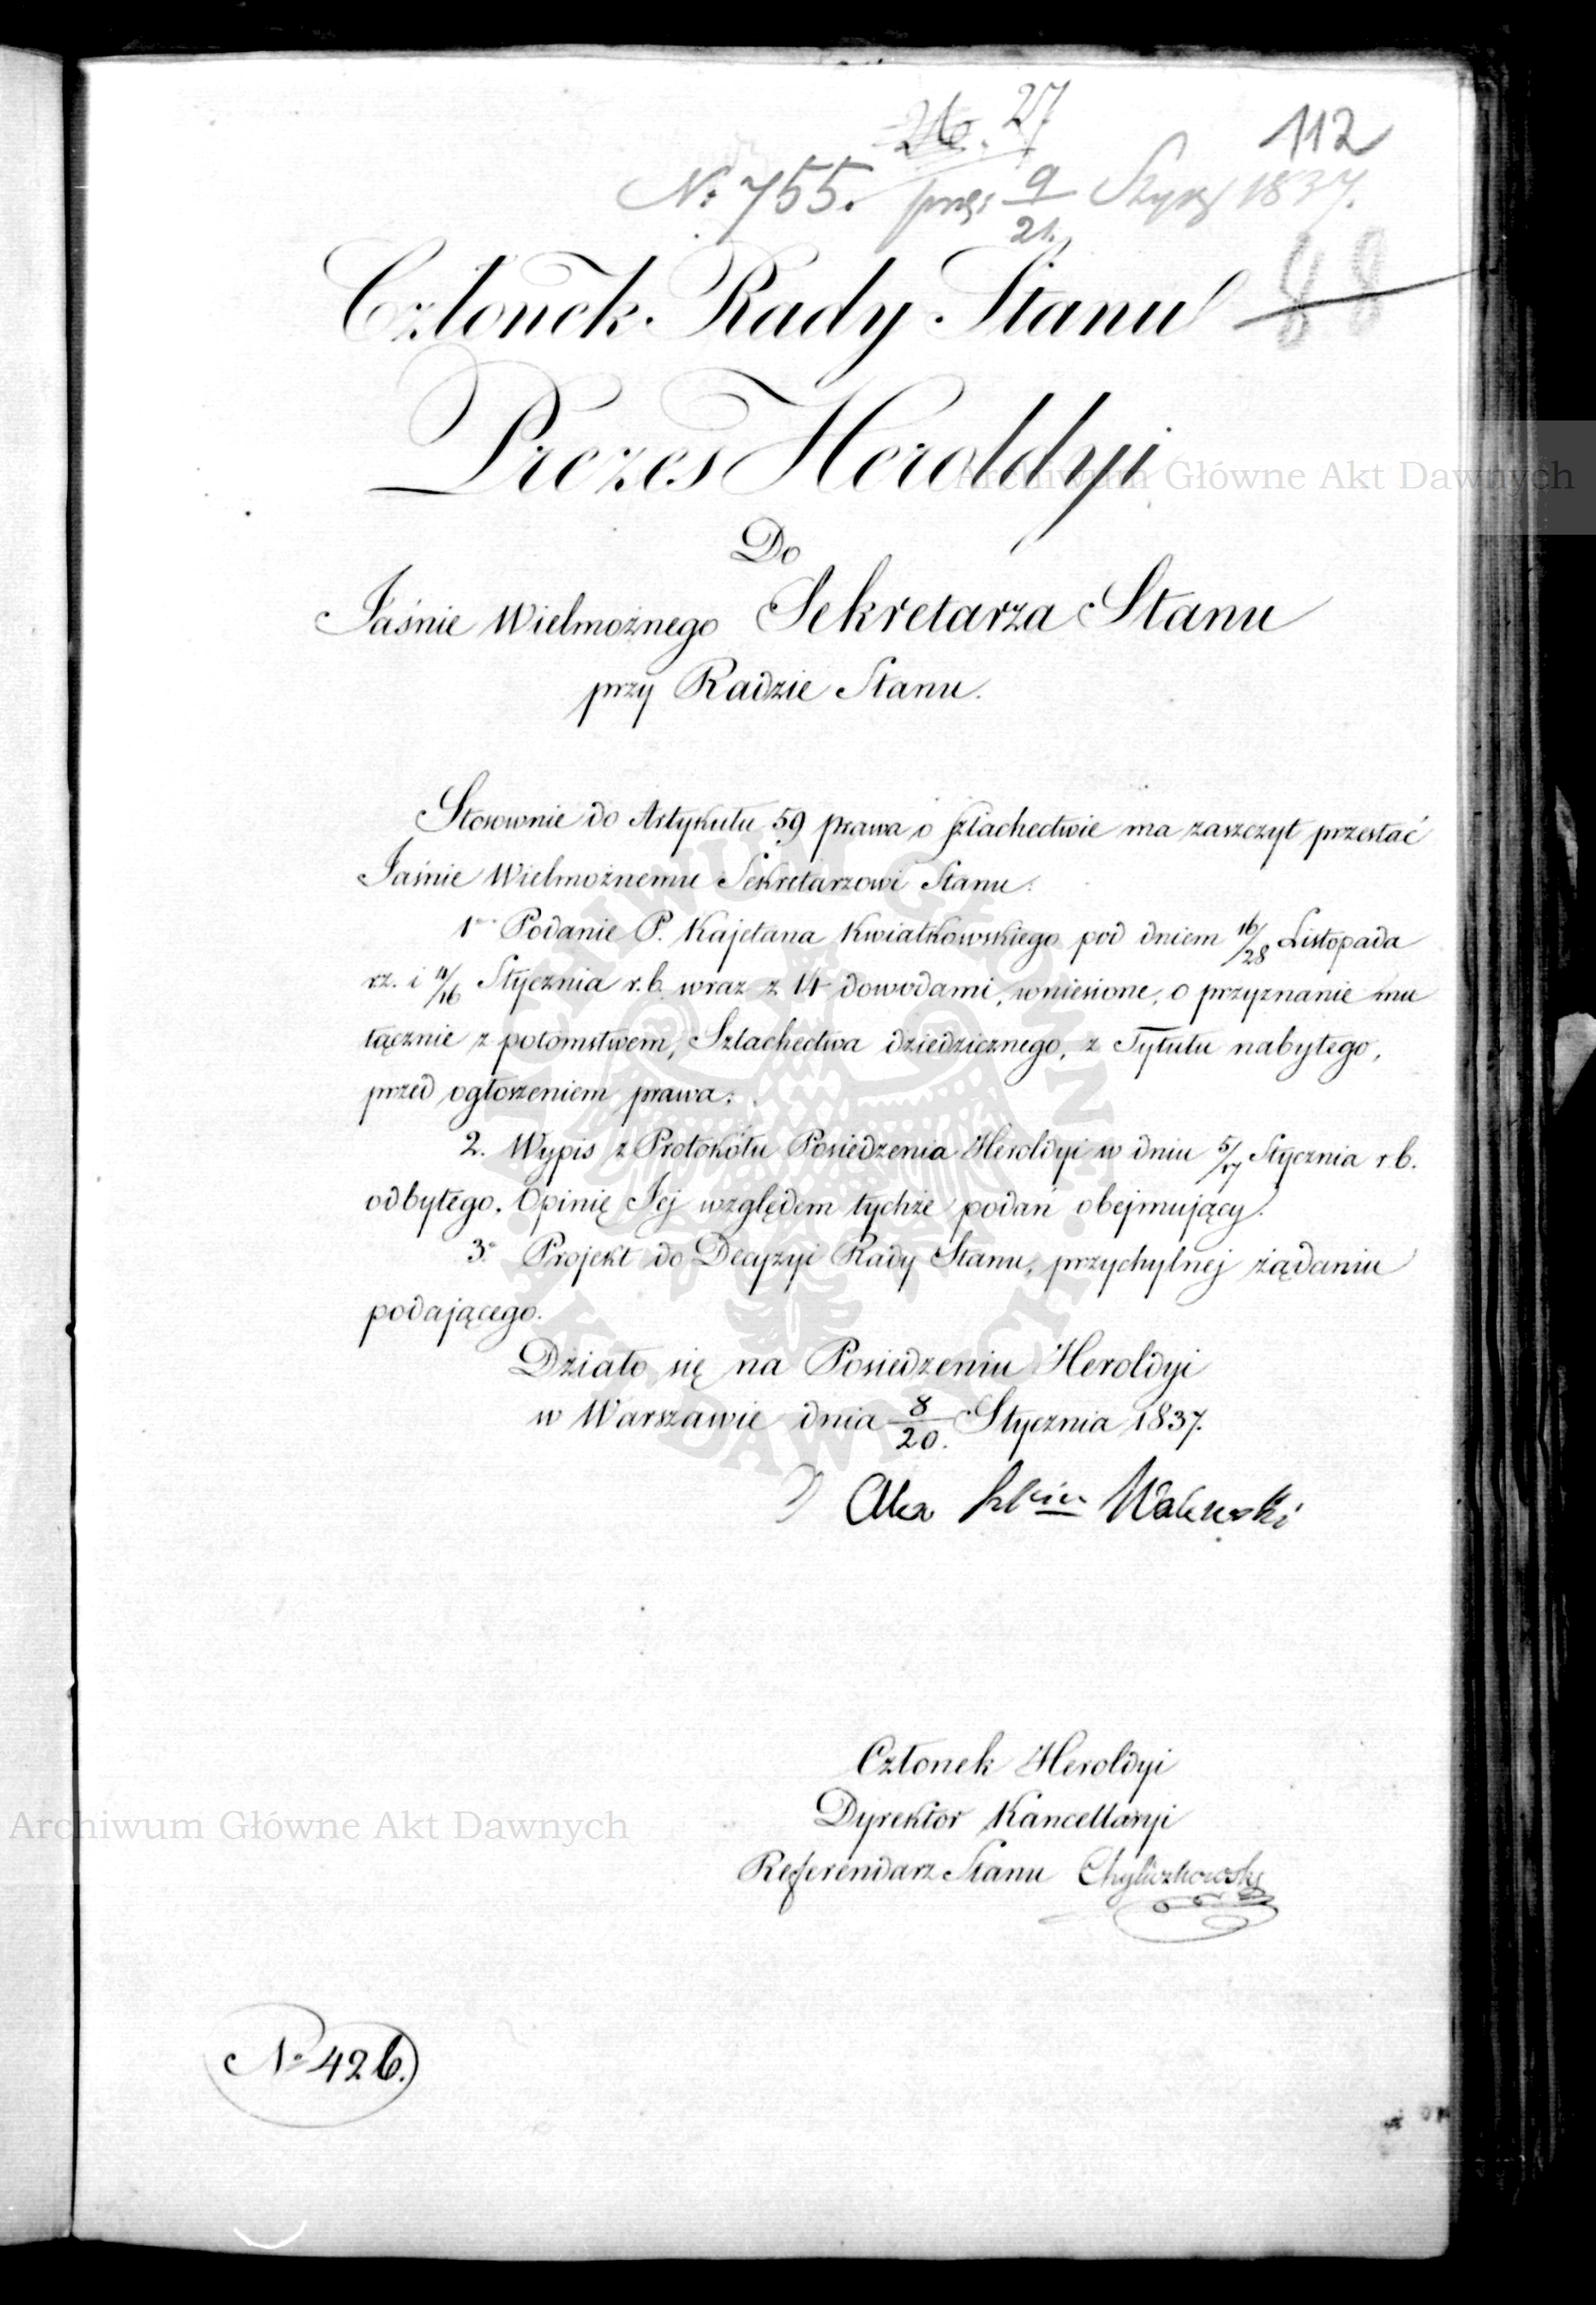 27
112
N: 755. 9/21. 1837.
88
Członek Rady Stanu
Prezes Heroldyi
Do
Jaśnie Wielmożnego Sekretarza Stanu
przy Radzie Stanu.
Stosownie do Artykułu 59 prawa o szlachectwie ma zaszczyt przesłać
Jaśnie Wielmożnemu Sekretarzowi Stanu:
1° Podanie P. Kajetana Kwiatkowskiego pod dniem 16/28 Listopada
r.z. i 4/16 Stycznia r.b. wraz z 14 dowodami, wniesione, o przyznanie mu
łącznie z potomstwem, Szlachectwa dziedzicznego, z Tytułu nabytego,
przed ogłoszeniem prawa.
2. Wypis z Protokółu Posiedzenia Heroldyi w dniu 5/17 Stycznia r.b.
odbytego, Opinię Jej względem tychże podań obejmujący.
3° Projekt do Decyzyi Rady Stanu, przychylnej żądaniu
podającego.
Działo się na Posiedzeniu Heroldyi
w Warszawie dnia 8/20. Stycznia 1837.
Alex Walewski
Członek Heroldyi
Dyrektor Kancellaryi
Referendarz Stanu Chyliczkowski
N° 426.
Archiwum Główne Akt Dawnych
Archiwum Główne Akt Dawnych
ARCHIWUM GŁÓWNE AKT DAWNYCH